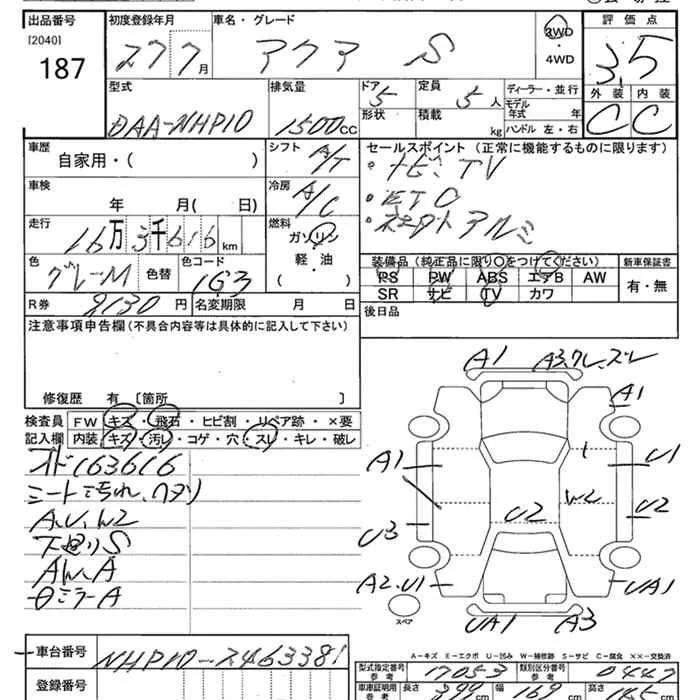 出品番号
[2040]
187
初度登録年月
27 7 月
車名・グレード
アクア S
2WD
・
4WD
評価点
3.5
外装 内装
C C
型式
DAA-NHP10
排気量
1500 cc
ドア
5
形状
定員
5 人
積載
kg
ディーラー・並行
モデル
年式 年
ハンドル 左・右
車歴
自家用・( )
シフト
A/T
セールスポイント (正常に機能するものに限ります)
・ナビ、TV
・ETC
・社外アルミ
車検
年 月( 日)
冷房
A/C
走行
16万3千616 km
燃料
ガソリン
軽・油
( )
色
グレーM
色替
色コード
1G3
装備品 (純正品に限り○をつけてください)
PS PW ABS エアB AW
SR ナビ TV カワ
新車保証書
有・無
R券 8130 円
名変期限 月 日
後日品
注意事項申告欄(不具合内容等は具体的に記入して下さい)
修復歴 有 [箇所 ]
検査員
記入欄
FW キズ・飛石・ヒビ割・リペア跡・×要
内装 キズ・汚レ・コゲ・穴・スレ・キレ・破レ
オド163616
シート汚れ、ヘタリ
A、U、W2
下廻りS
AW、A
A1
A1
A1
U1
U2
W2
U2
U3
A2、U1
UA1
UA1
A3
スペア
A－キズ E－エクボ U－凹み W－補修跡 S－サビ C－腐食 ××－交換済
車台番号
NHP10-2463381
登録番号
型式指定番号
参考
17053
類別区分番号
参考
0447
車庫証明用
参考
長さ
399 cm
幅
169 cm
高さ
cm